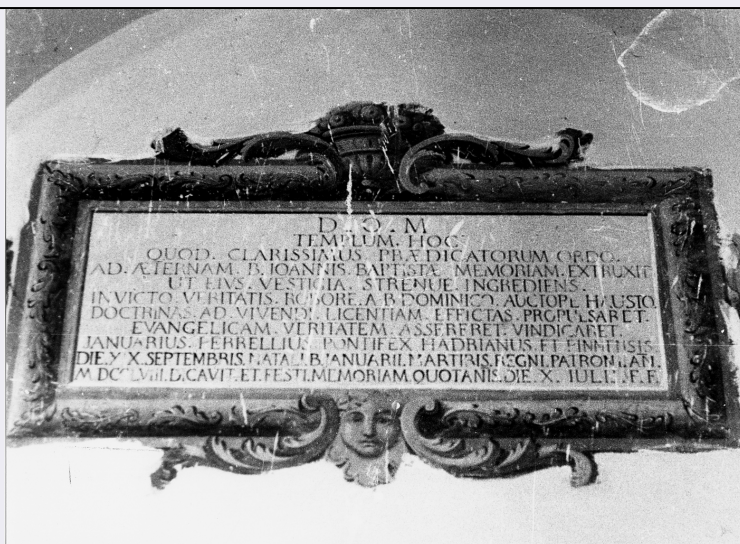 D. O. M
TEMPLUM. HOC
QUOD. CLARISSIMUS. PRÆDICATORUM ORDO.
AD. ÆTERNAM. B. IOANNIS. BAPTISTÆ MEMORIAM. EXTRUXIT
UT EIVS. VESTIGIA. STRENUE. INGREDIENS.
INVICTO. VERITATIS. ROBORE. A B DOMINICO. AUCTORE HAUSTO.
DOCTRINAS. AD. VIVENDI. LICENTIAM. EFFICTAS. PROPULSARET.
EVANGELICAM. VERITATEM. ASSERERET. VINDICARET.
JANUARIUS. PERRELLIUS. PONTIFEX HADRIANUS. ET
DIE. X X. SEPTEMBRIS. NATALI. B. IANUARII. MARTIRIS. REGNI. PATRONI. AN.
M DCCLVIII. DICAVIT. ET. FESTI. MEMORIAM. QUOTANIS. DIE. X. IULII. F. F.